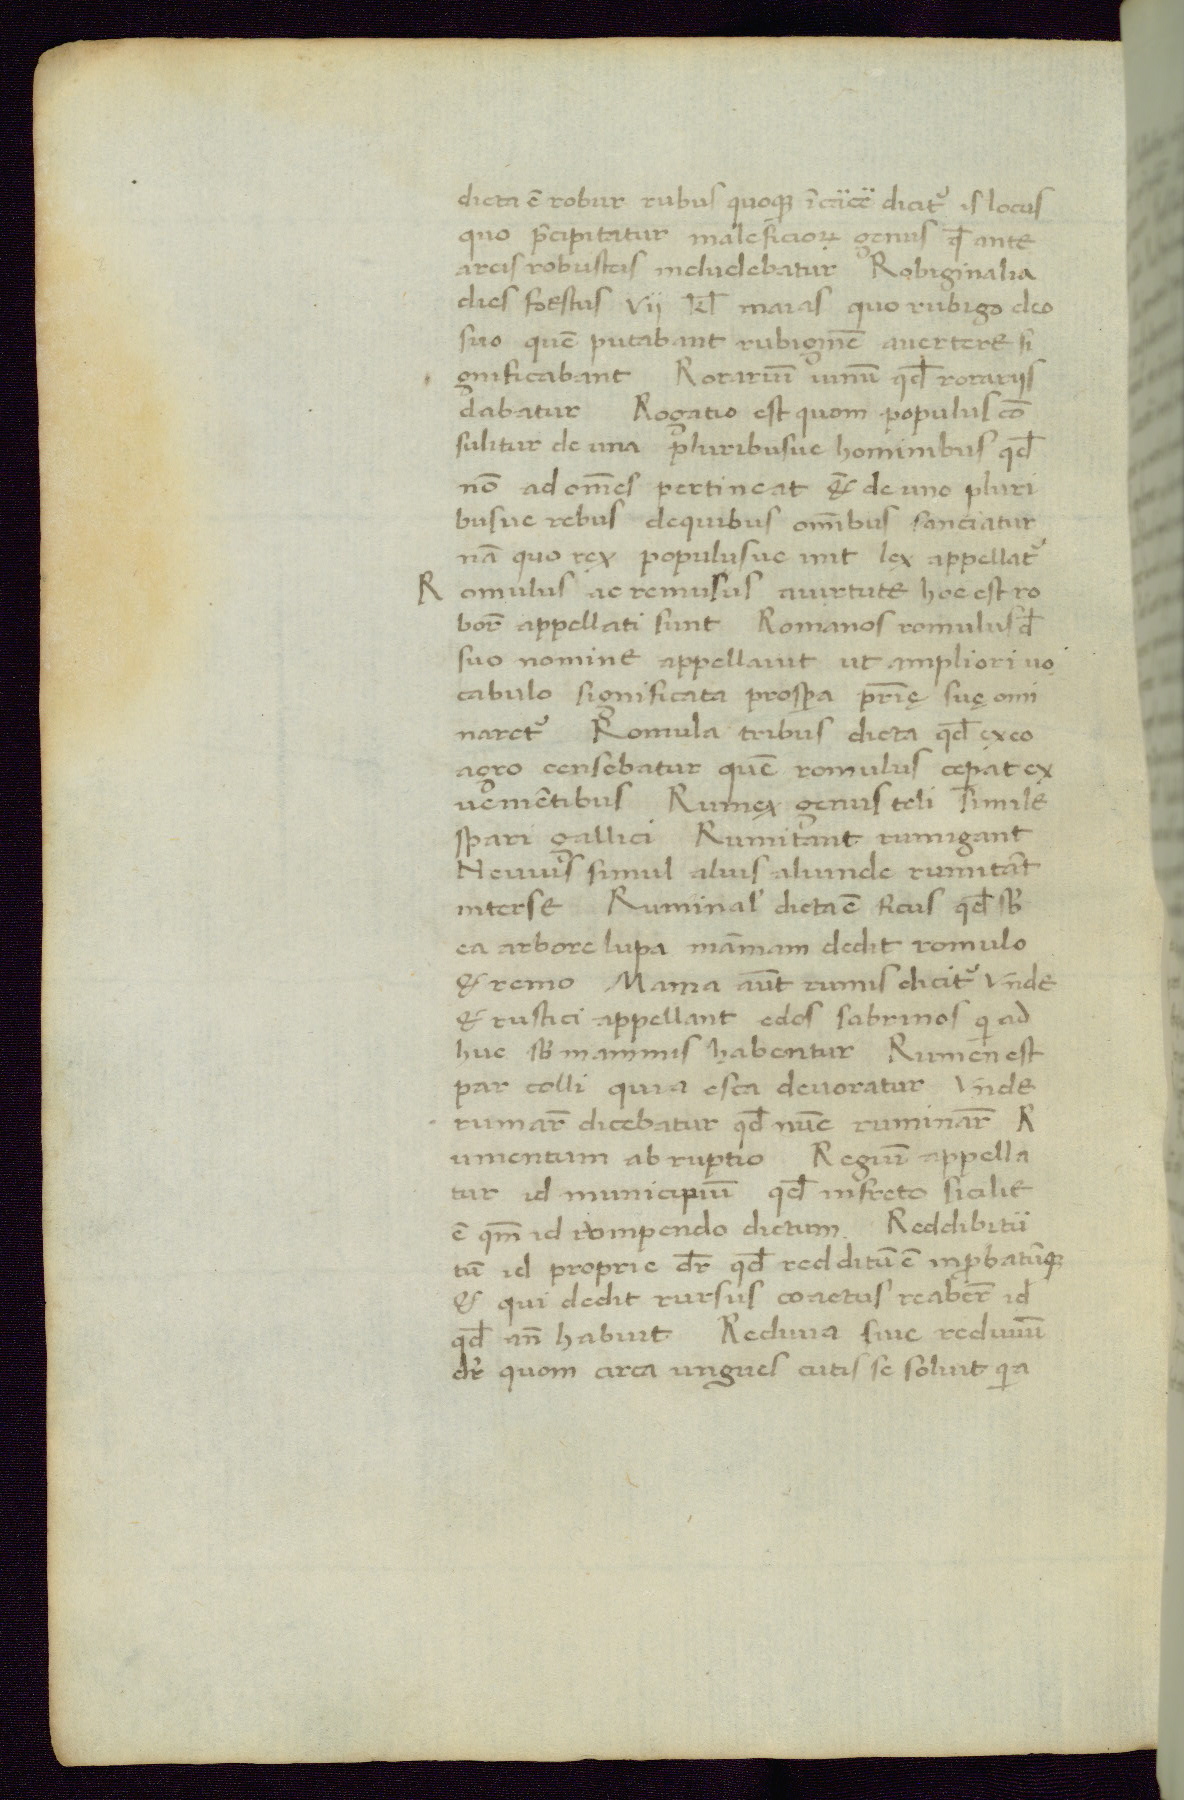 dicta ē robur rubus quoqꝫ ī carcere dicit᷑ is locus
quo p̄cipitatur maleficioꝝ genus qd̄ ante
arcis robusteis includebatur Robiginalia
dies foestus vij kl̄ maias quo rubigo deo
suo quē putabant rubiginē auertere si
gnificabant Rorariū uinū qd̄ rorarijs
dabatur Rogatio est quom populus cō
sulitur de una pluribusue hominibus qd̄
nō ad om̄es pertineat & de uno pluri
busue rebus dequibus om̄ibus sanciatur
nā quo rex populusue iuit lex appellat᷑
Romulus ac remusus auirtute hoc est ro
bor̄ appellati sunt Romanos romulus d̄
suo nomine appellauit ut ampliori uo
cabulo significata prosꝑa pr̄ię suę omi
naret᷑ Romula tribus dicta qd̄ exeo
agro censebatur quē romulus ceꝑat ex
ueniētibus Rumex genus teli simile
spari gallici Rumitant rumigant
Neuuis simul aluis aliunde rumitāt
interse Ruminal' dicta ē ficus qd̄ sb̄
ea arbore lupa māmam dedit romulo
& remo Mama aūt rumis dicit᷑ Vnde
& rustici appellant edos sabrinos qi ad
huc sb̄ mammis habentur Rumen est
par colli quia esca deuoratur Vnde
rumar̄ dicebatur qd̄ nūc ruminar̄ R
umentum abruptio Regiuī appella
tur id municipiū qd̄ infreto sicilie
ē qm̄ id rompendo dictum Reddibitu
tū id proprie dr̄ qd̄ redditū ē inꝓbatūqꝫ
& qui dedit rursus coactus reaber̄ id
qd̄ an̄ habuit Rediuia siue rediuiū
dr̄ quom circa ungues cutis se soluit qia